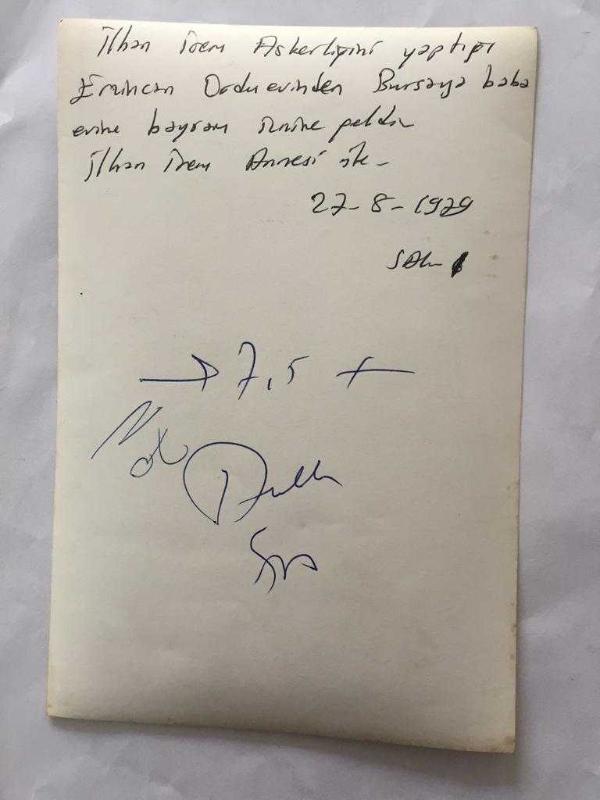 İlhan İrem Askerliğini yaptığı
Erzincan Orduevinden Bursaya baba
evine bayram iznine geldi
İlhan İrem Annesi ile
27-8-1979
Salı
7,5
Not